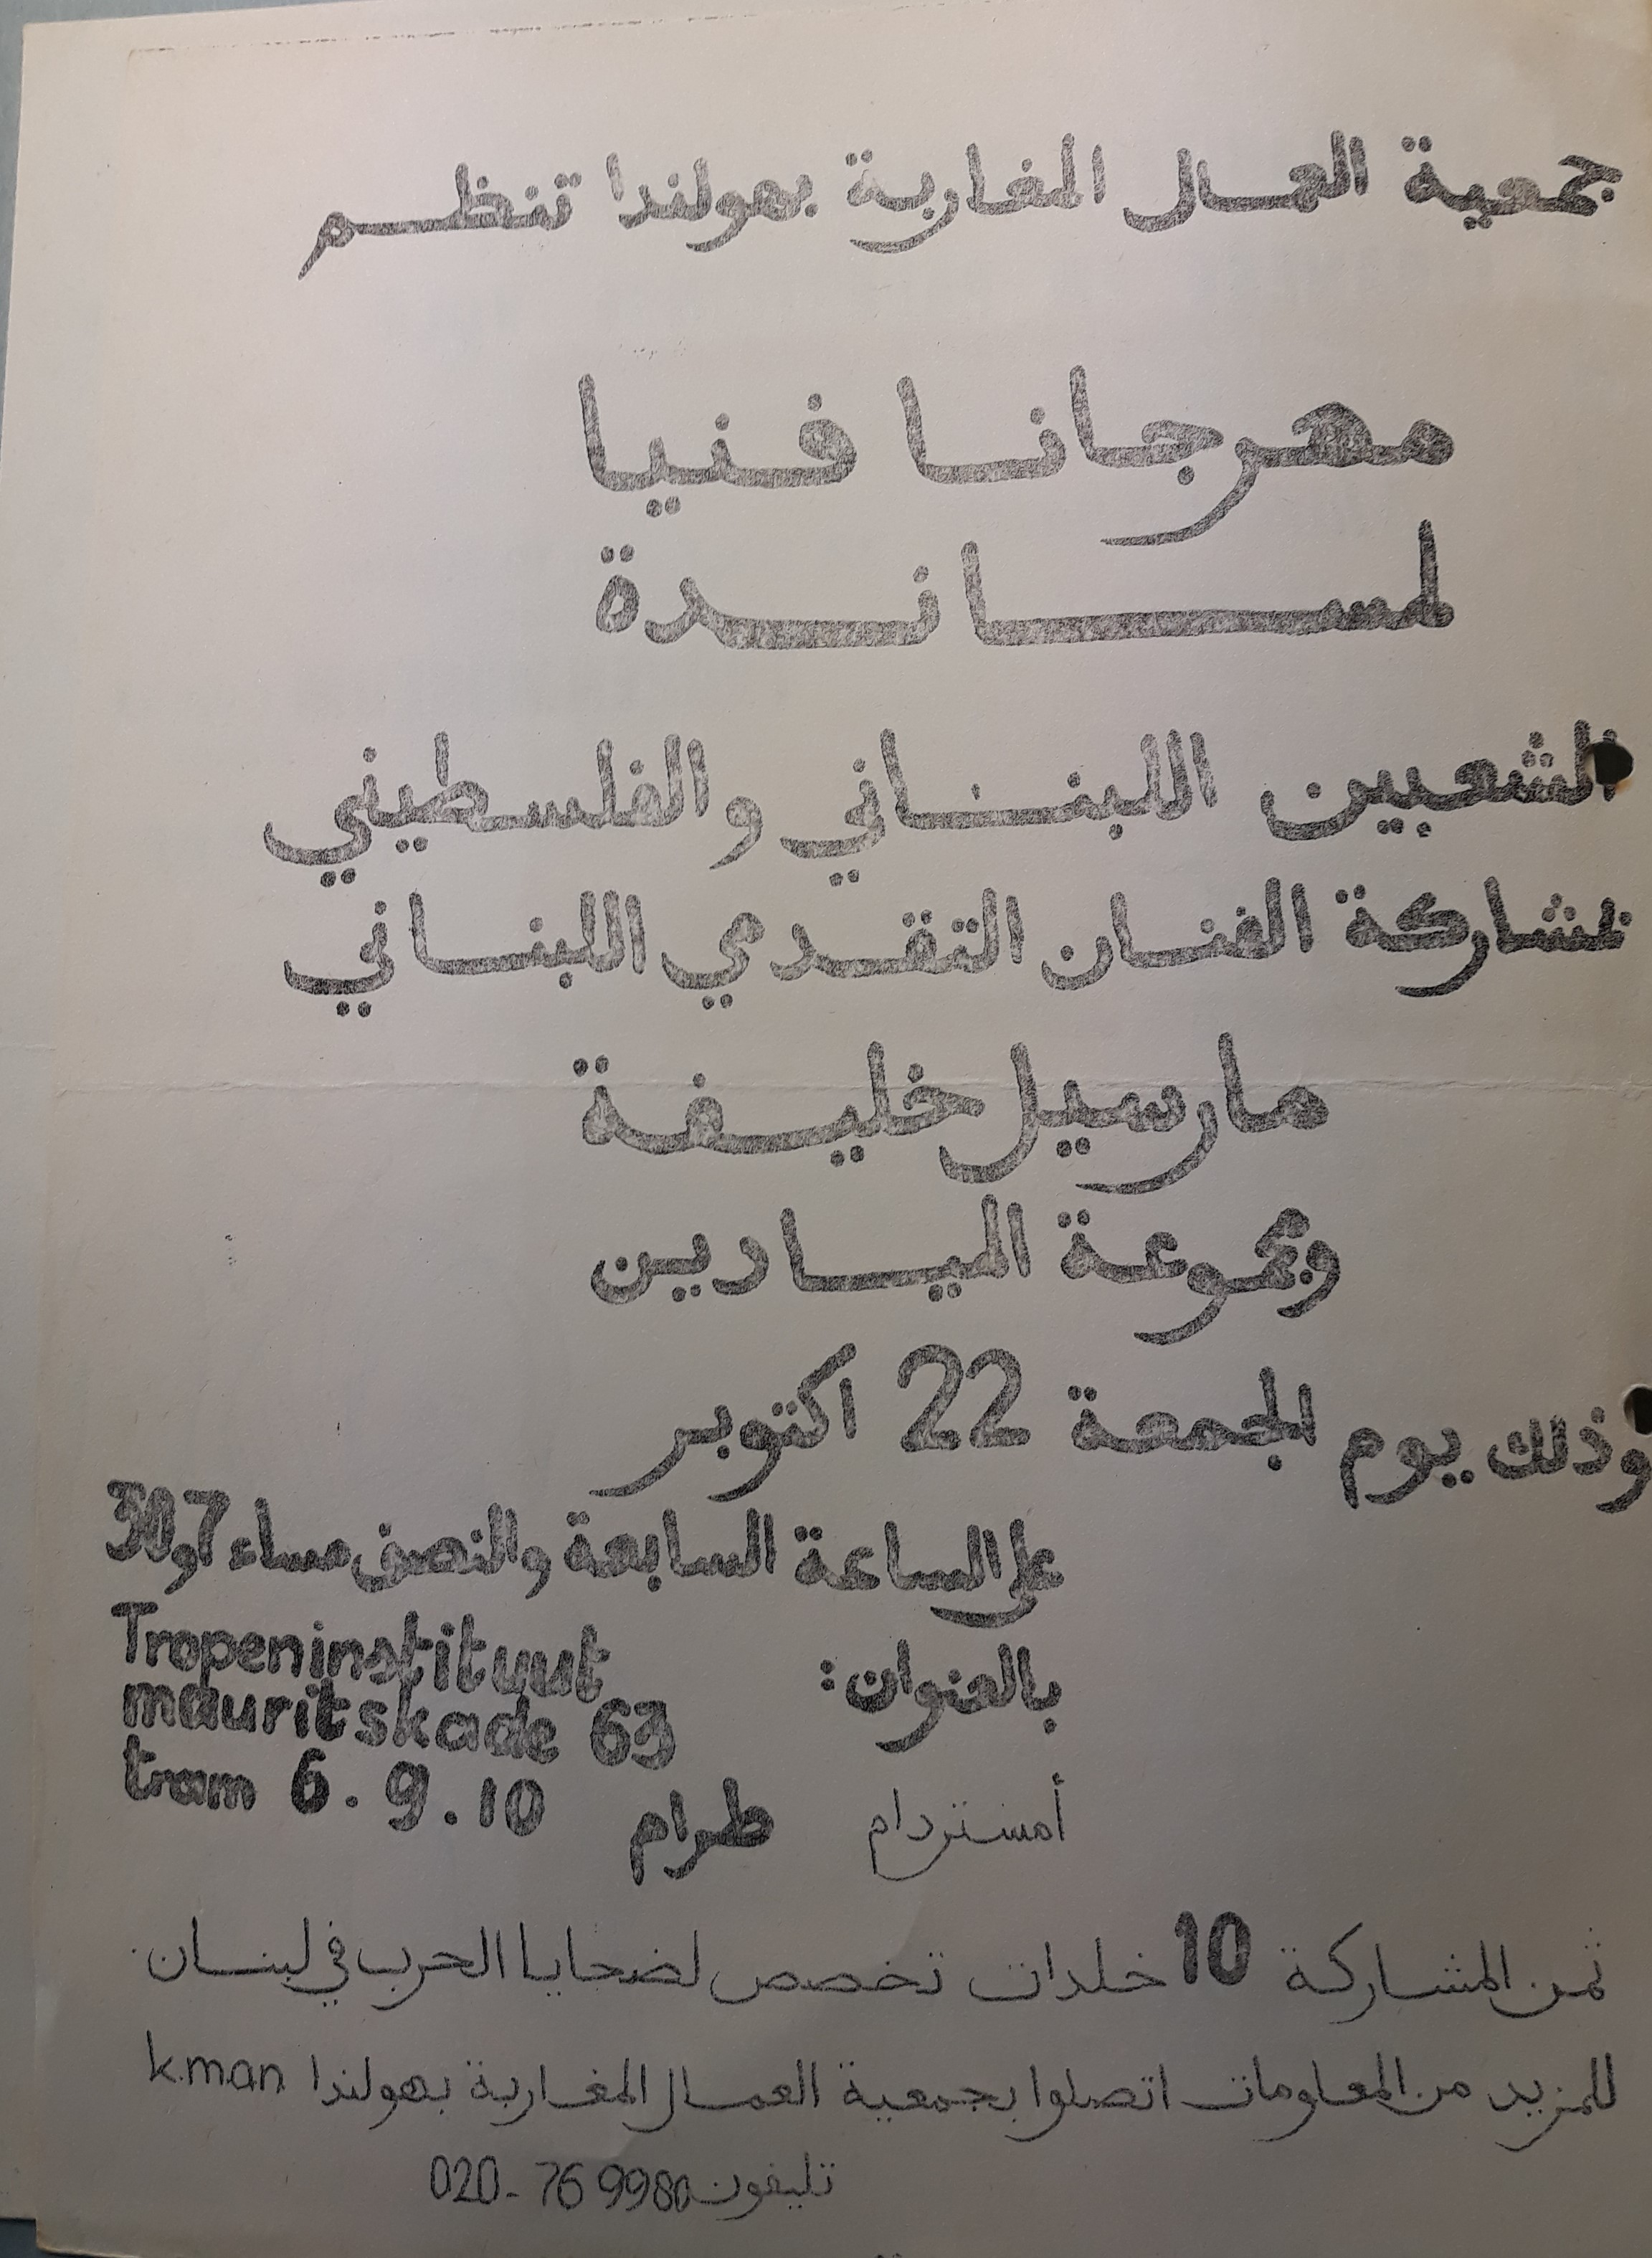 جمعية العمال المغاربة بهولندا تنظم
مهرجانا فنيا
لمساندة
الشعبين اللبناني والفلسطيني
بمشاركة الفنان التقدمي اللبناني
مارسيل خليفة
ومجموعة الميادين
وذلك يوم الجمعة 22 اكتوبر
على الساعة السابعة والنصف مساء 7و30
بالعنوان: Tropeninstituut
mauritskade 63
أمستردام طرام tram 6.9.10
ثمن المشاركة 10 خلدات تخصص لضحايا الحرب في لبنان.
للمزيد من المعلومات اتصلوا بجمعية العمال المغاربة بهولندا k.m.a.n
تليفون 020-76 9980